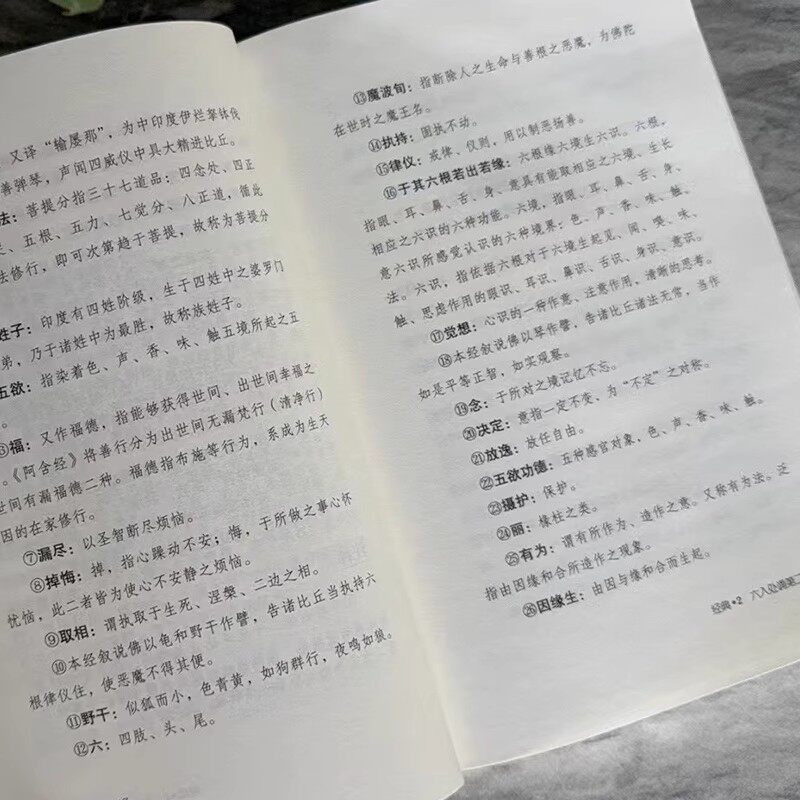 又译“输屡那”，为中印度伊烂拏钵伐
善弹琴，声闻四威仪中具大精进比丘。
法：菩提分指三十七道品：四念处、四正
、五根、五力、七觉分、八正道，循此
法修行，即可次第趋于菩提，故称为菩提分
姓子：印度有四姓阶级，生于四姓中之婆罗门
弟，乃于诸姓中为最胜，故称族姓子。
五欲：指染着色、声、香、味、触五境所起之五
。
福：又作福德，指能够获得世间、出世间幸福之
。《阿含经》将善行分为出世间无漏梵行（清净行）
世间有漏福德二种。福德指布施等行为，系成为生天
因的在家修行。
⑦漏尽：以圣智断尽烦恼。
⑧掉悔：掉，指心躁动不安；悔，于所做之事心怀
忧恼，此二者皆为使心不安静之烦恼。
⑨取相：谓执取于生死、涅槃、二边之相。
⑩本经叙说佛以龟和野干作譬，告诸比丘当执持六
根律仪住，使恶魔不得其便。
⑪野干：似狐而小，色青黄，如狗群行，夜鸣如狼。
⑫六：四肢、头、尾。
⑬魔波旬：指断除人之生命与善根之恶魔，为佛陀
在世时之魔王名。
⑭执持：固执不动。
⑮律仪：戒律、仪则，用以制恶扬善。
⑯于其六根若出若缘：六根缘六境生六识。六根，
指眼、耳、鼻、舌、身、意具有能取相应之六境、生长
相应之六识的六种功能。六境，指眼、耳、鼻、舌、身、
意六识所感觉认识的六种境界：色、声、香、味、触、
法。六识，指依据六根对于六境生起见、闻、嗅、味、
触、思虑作用的眼识、耳识、鼻识、舌识、身识、意识。
⑰觉想：心识的一种作意、注意作用，清晰的思考。
⑱本经叙说佛以琴作譬，告诸比丘诸法无常，当作
如是平等正智，如实观察。
⑲念：于所对之境记忆不忘。
⑳决定：意指一定不变、为“不定”之对称。
㉑放逸：放任自由。
㉒五欲功德：五种感官对象，色、声、香、味、触。
㉓摄护：保护。
㉔丽：缘柱之类。
㉕有为：谓有所作为、造作之意。又称有为法。泛
指由因缘和合所造作之现象。
㉖因缘生：由因与缘和合而生起。
经典•2 六入处诵第二